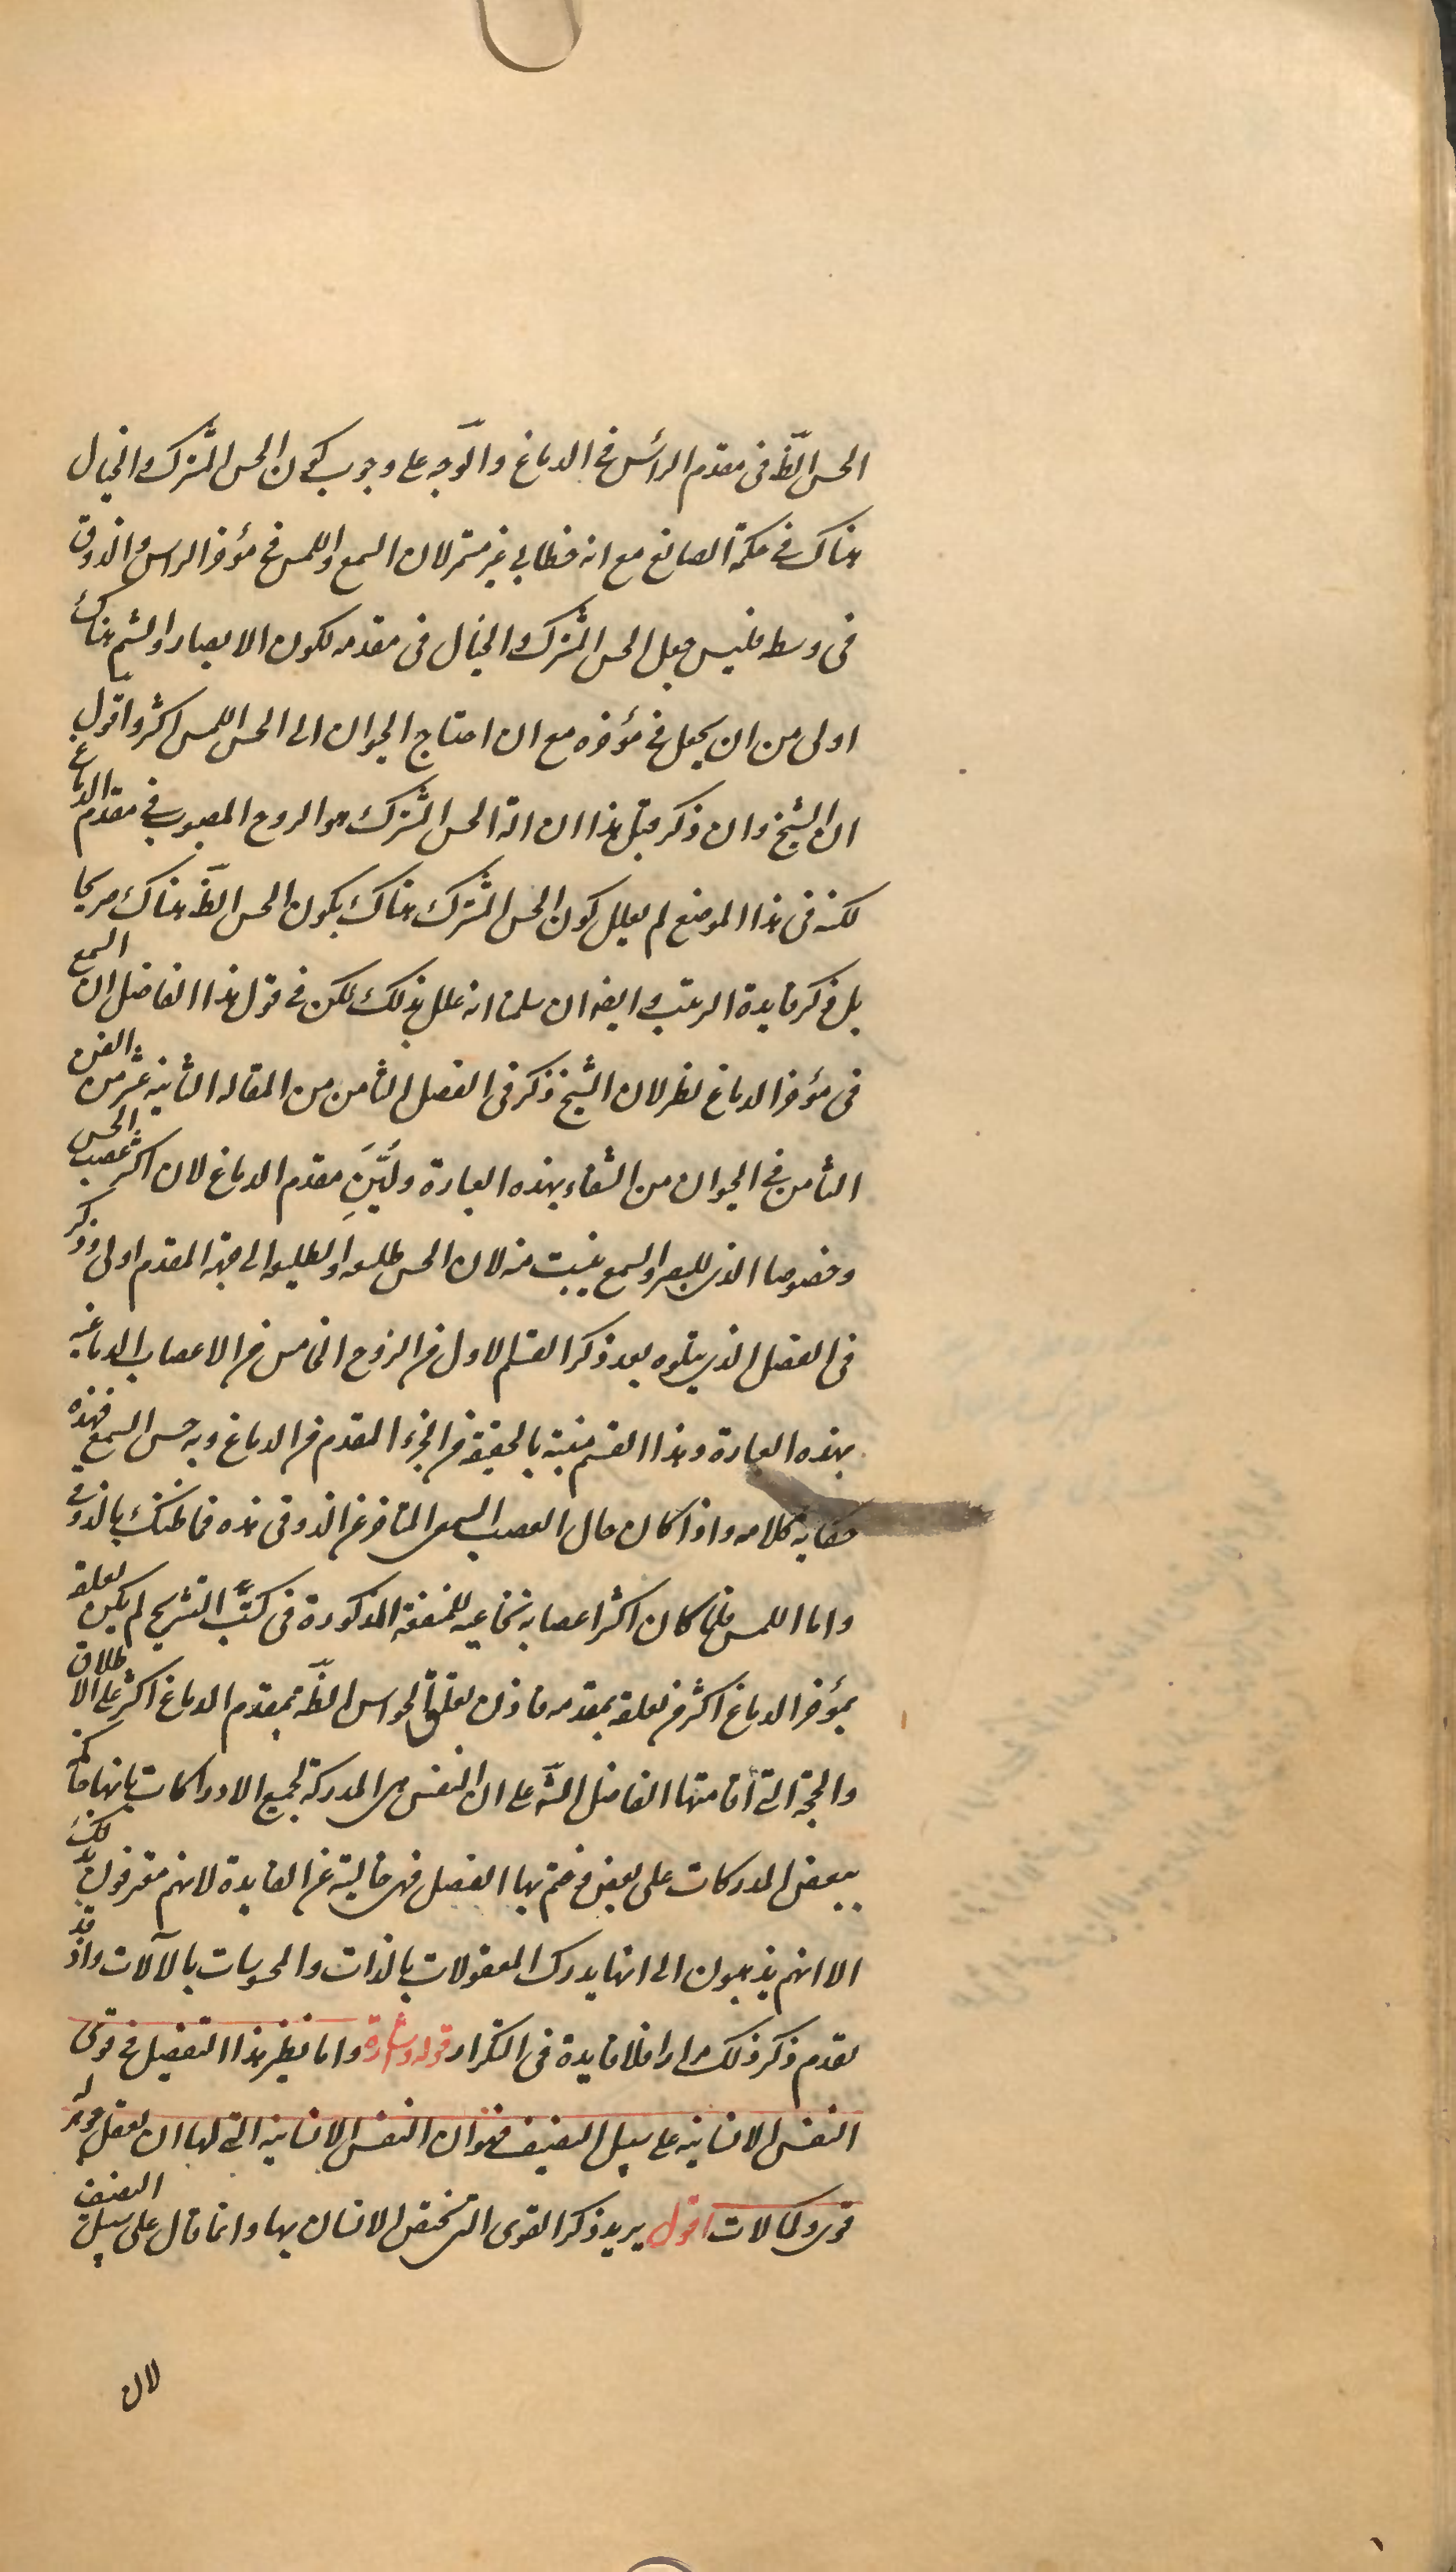 الحس الظّ فى مقدم الرأس فى الدماغ والوجه على وجوب كون الحس المشترك والخيال
هناك فى حكمة الصانع مع انه خطابى غير مستمر لان السمع واللمس فى مؤخر الراس والذوق
فى وسطه فليس جعل الحس المشترك والخيال فى مقدمه لكون الابصار والشم هناك
اولى من ان يجعل فى مؤخره مع ان احتاج الحيوان الى الحس اللمس اكثر واقول
ان الشيخ وان ذكر قبل هذا ان الة الحس المشترك هو الروح المصبوب فى مقدم الدماغ
لكنه فى هذا الموضع لم يعلل كون الحس المشترك هناك بكون الحس الظّ هناك صريحا
بل ذكر فايدة الترتيب وايضه ان سلمنا انه علل بذلك لكن فى قول هذا الفاضل ان السمع
فى مؤخر الدماغ نظر لان الشيخ ذكر فى الفصل الثامن من المقاله الثانيه عشر من الفن
الثامن فى الحيوان من الشفاء بهذه العبارة ولُيِّنَ مقدم الدماغ لان اكثر عصب الحس
وخصوصا الذى للبصر والسمع ينبت منه لان الحس طليعه والطليعه الى جهة المقدم اولى وذكر
فى الفصل الذى يتلوه بعد ذكر القسم الاول من الزوج الخامس من الاعصاب الدماغيه
بهذه العبارة وهذا القسم منبته بالحقيقة من الجزء المقدم من الدماغ وبه حس السمع فهذه
حكاية كلامه واذا كان حال العصب السمعى المتاخر عن الذوقى هذه فما ظنك بالذوقى
واما اللمس فلما كان اكثر اعصابه نخاعيه للمنفعة المذكورة فى كتب التشريح لم يكن تعلقه
بمؤخر الدماغ اكثر من تعلقه بمقدمه فاذن تعلق الحواس الظّه بمقدم الدماغ اكثر على الاطلاق
والحجة التى اقامتها الفاضل الشّ على ان النفس هى المدركة لجميع الادراكات بانها حاكمة
ببعض المدركات على بعض وختم بها الفصل فهى خالية عن الفايدة لانهم معترفون بذلك
الا انهم يذهبون الى انها يدرك المعقولات بالذات والمحسوسات بالآلات واذ قد
تقدم ذكر ذلك مرارا فلا فايدة فى التكرار قوله اشارة واما نظير هذا التفصيل فى قوى
النفس الانسانيه على سبيل التصنيف فهو ان النفس الانسانيه التى لها ان تعقل جوهر له
قوى وكمالات اقول يريد ذكر القوى التى تختص الانسان بها وانما قال على سبيل التصنيف
لان